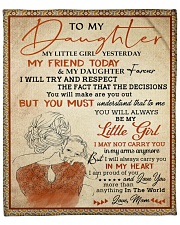 TO MY
Daughter
MY LITTLE GIRL YESTERDAY
MY FRIEND TODAY
& MY DAUGHTER Forever
I WILL TRY AND RESPECT
THE FACT THAT THE DECISIONS
You will make are you out
BUT YOU MUST understand that to me
YOU WILL ALWAYS
BE MY
Little Girl
I MAY NOT CARRY YOU
in my arms anymore
But I will always carry you
IN MY HEART
I am proud of you
and Love You
more than
anything In The World
Love, Mom